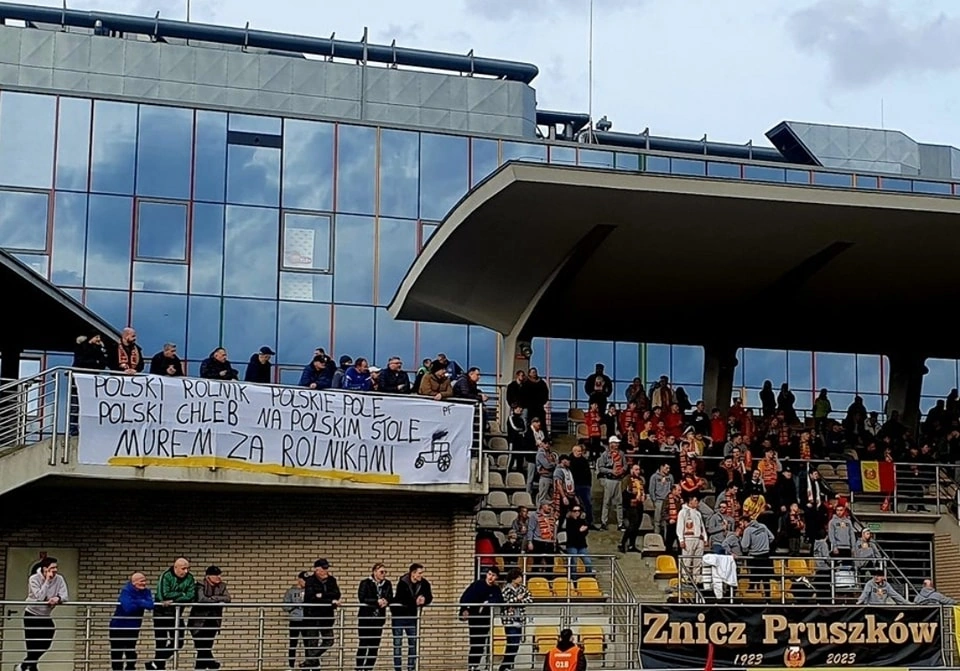 POLSKI ROLNIK POLSKIE POLE
PF
POLSKI CHLEB NA POLSKIM STOLE
MUREM ZA ROLNIKAMI
Znicz Pruszków
1923 2023
018